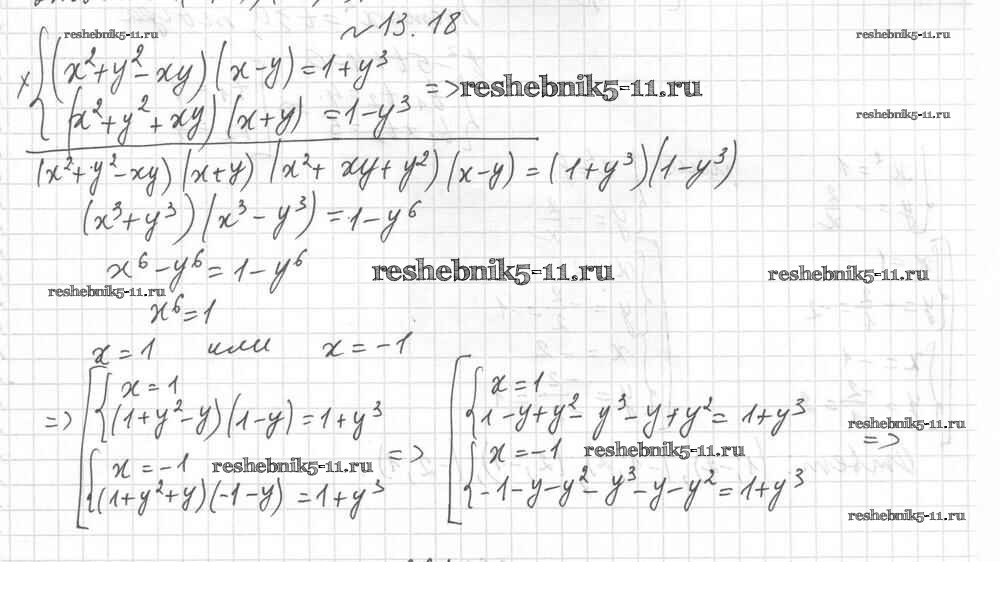 ~ 13.18
reshebnik5-11.ru reshebnik5-11.ru
x { (x²+y²-xy)(x-y)=1+y³
(x²+y²+xy)(x+y) =1-y³ => reshebnik5-11.ru
reshebnik5-11.ru
(x²+y²-xy)(x+y)(x²+xy+y²)(x-y)=(1+y³)(1-y³)
(x³+y³)(x³-y³)=1-y⁶
x⁶-y⁶=1-y⁶ reshebnik5-11.ru reshebnik5-11.ru
reshebnik5-11.ru
x⁶=1
x=1 или x=-1
=> [ { x=1
(1+y²-y)(1-y)=1+y³
{ x=-1 reshebnik5-11.ru
(1+y²+y)(-1-y)=1+y³
=> [ { x=1
1-y+y²-y³-y+y²=1+y³
reshebnik5-11.ru
{ x=-1 reshebnik5-11.ru =>
-1-y-y²-y³-y-y²=1+y³
reshebnik5-11.ru